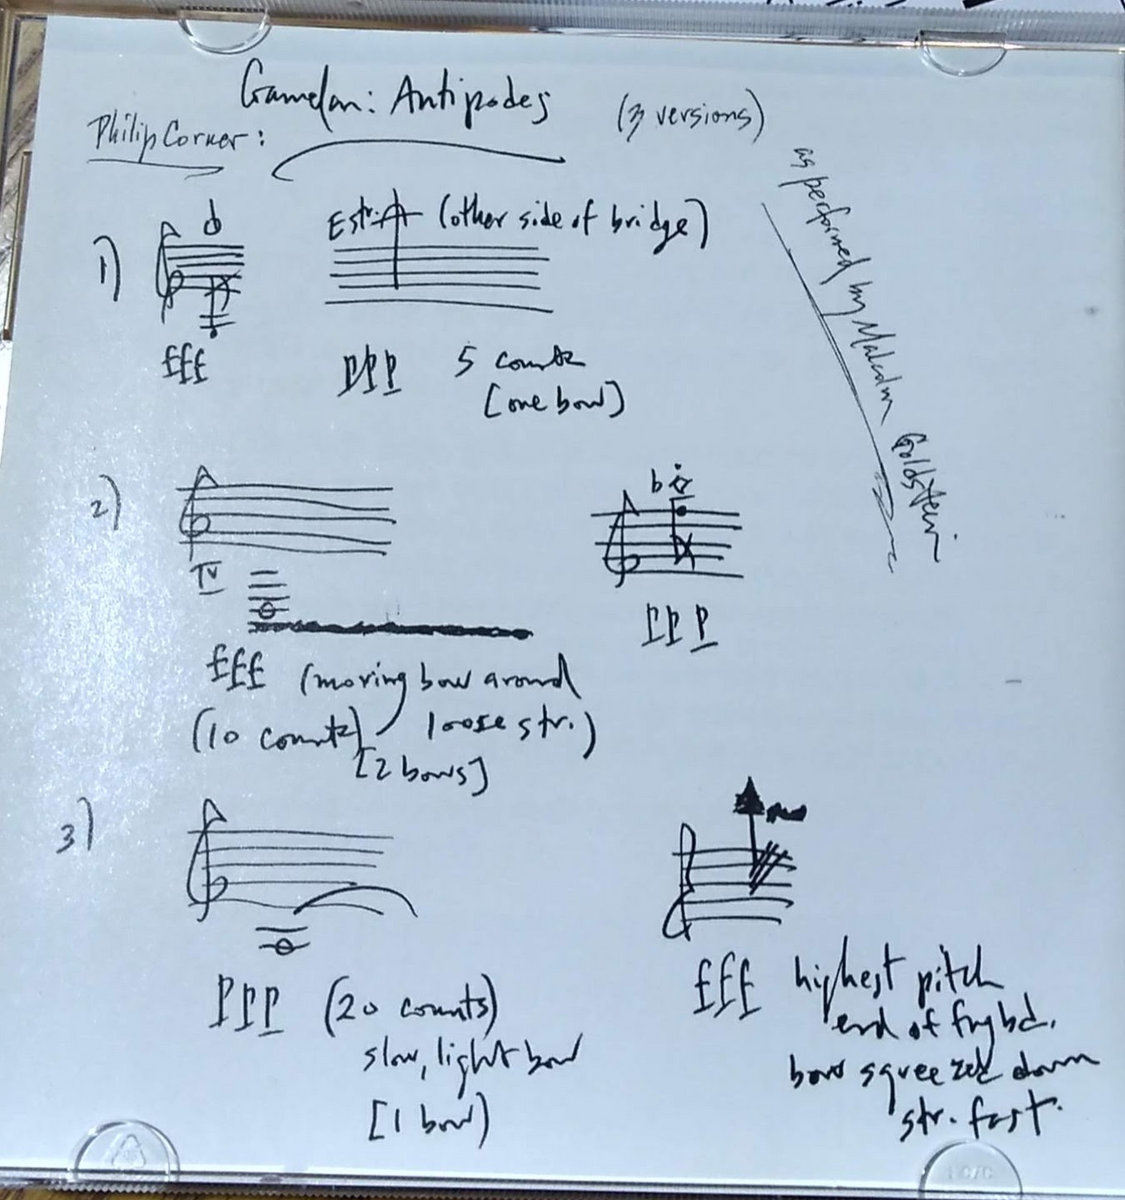 Gamelan: Antipodes (3 versions)
Philip Corner:
as performed by Malcolm Goldstein
1) E str. (other side of bridge)
fff ppp 5 counts
[one bow]
2)
IV
ppp
fff (moving bow around
(10 counts) loose str.)
[2 bows]
3)
ppp (20 counts)
slow, light bow
[1 bow]
fff highest pitch
end of fngbd.
bow squeezed down
str. fast.